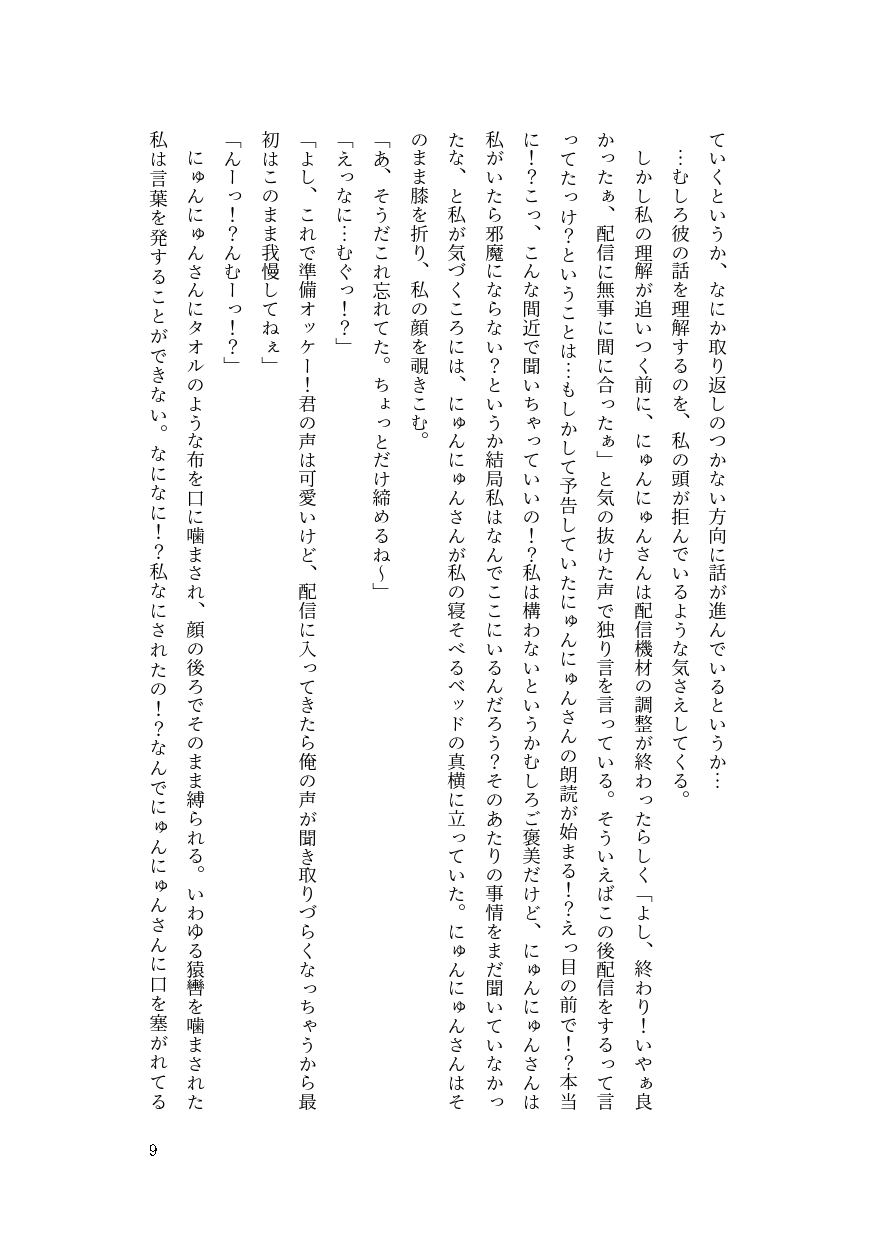 ていくというか、なにか取り返しのつかない方向に話が進んでいるというか…
…むしろ彼の話を理解するのを、私の頭が拒んでいるような気さえしてくる。
しかし私の理解が追いつく前に、にゅんにゅんさんは配信機材の調整が終わったらしく「よし、終わり！いやぁ良
かったぁ、配信に無事に間に合ったぁ」と気の抜けた声で独り言を言っている。そういえばこの後配信をするって言
ってたっけ？ということは…もしかして予告していたにゅんにゅんさんの朗読が始まる！？えっ目の前で！？本当
に！？こっ、こんな間近で聞いちゃっていいの！？私は構わないというかむしろご褒美だけど、にゅんにゅんさんは
私がいたら邪魔にならない？というか結局私はなんでここにいるんだろう？そのあたりの事情をまだ聞いていなかっ
たな、と私が気づくころには、にゅんにゅんさんが私の寝そべるベッドの真横に立っていた。にゅんにゅんさんはそ
のまま膝を折り、私の顔を覗きこむ。
「あ、そうだこれ忘れてた。ちょっとだけ締めるね～」
「えっなに…むぐっ！？」
「よし、これで準備オッケー！君の声は可愛いけど、配信に入ってきたら俺の声が聞き取りづらくなっちゃうから最
初はこのまま我慢してねぇ」
「んーっ！？んむーっ！？」
にゅんにゅんさんにタオルのような布を口に噛まされ、顔の後ろでそのまま縛られる。いわゆる猿轡を噛まされた
私は言葉を発することができない。なになに！？私なにされたの！？なんでにゅんにゅんさんに口を塞がれてる
9